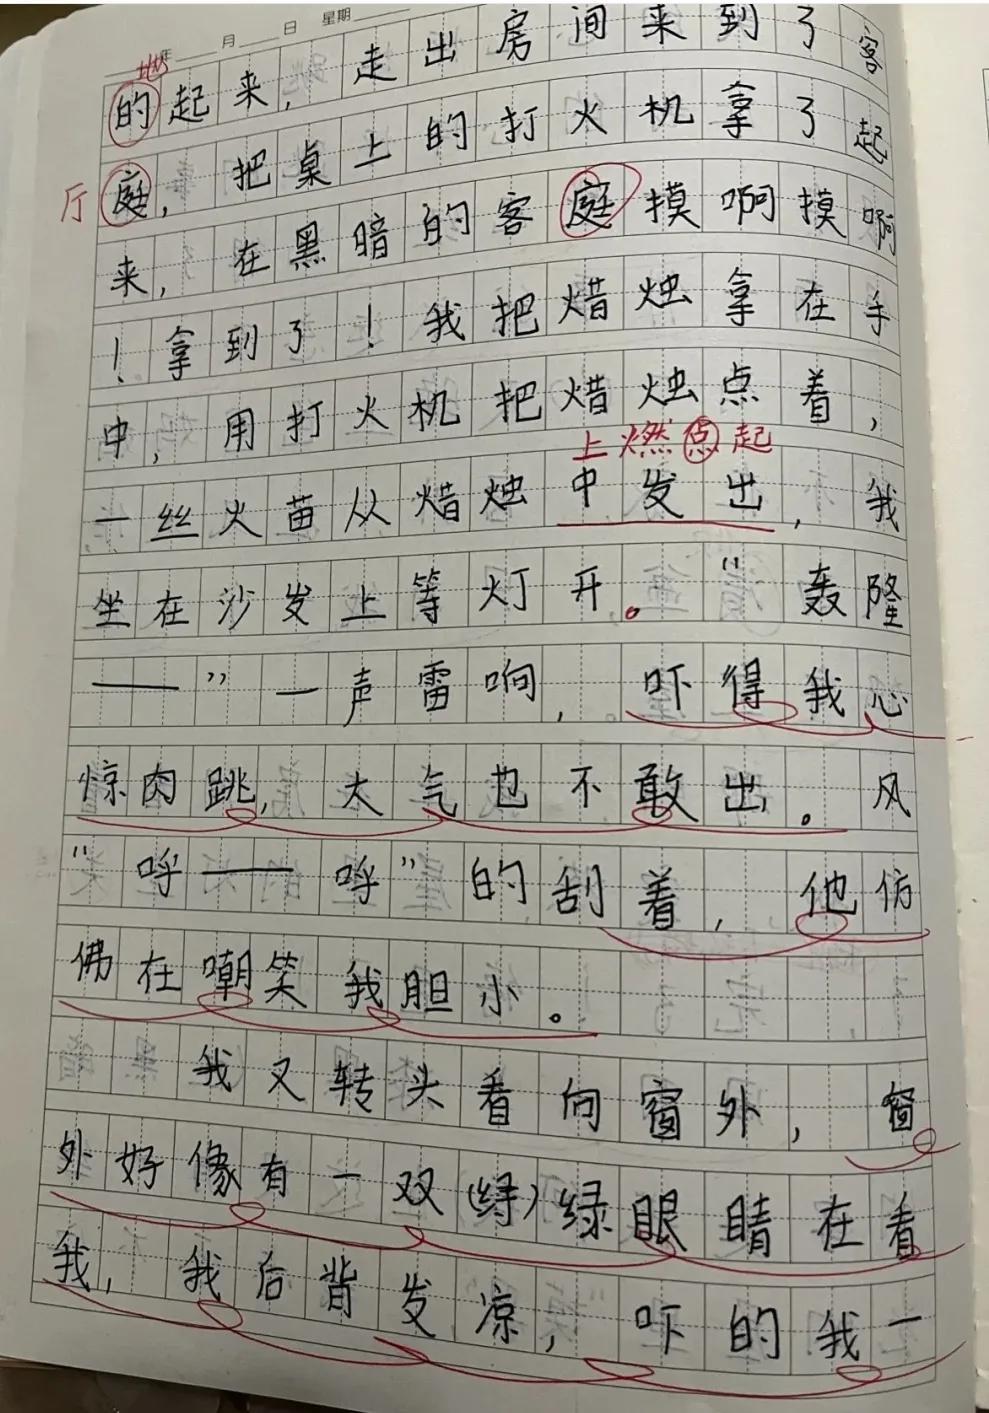 年 月 日 星期
地
的起来，走出房间来到了客
厅 庭，把桌上的打火机拿了起
来，在黑暗的客庭摸啊摸啊
！拿到了！我把蜡烛拿在手
中，用打火机把蜡烛点着，
上燃点起
一丝火苗从蜡烛中发出，我
坐在沙发上等灯开。“轰隆
——”一声雷响，吓得我心
惊肉跳，大气也不敢出。风
“呼——呼”的刮着，他仿
佛在嘲笑我胆小。
我又转头看向窗外，窗
外好像有一双(绿)绿眼睛在看
我，我后背发凉，吓的我一